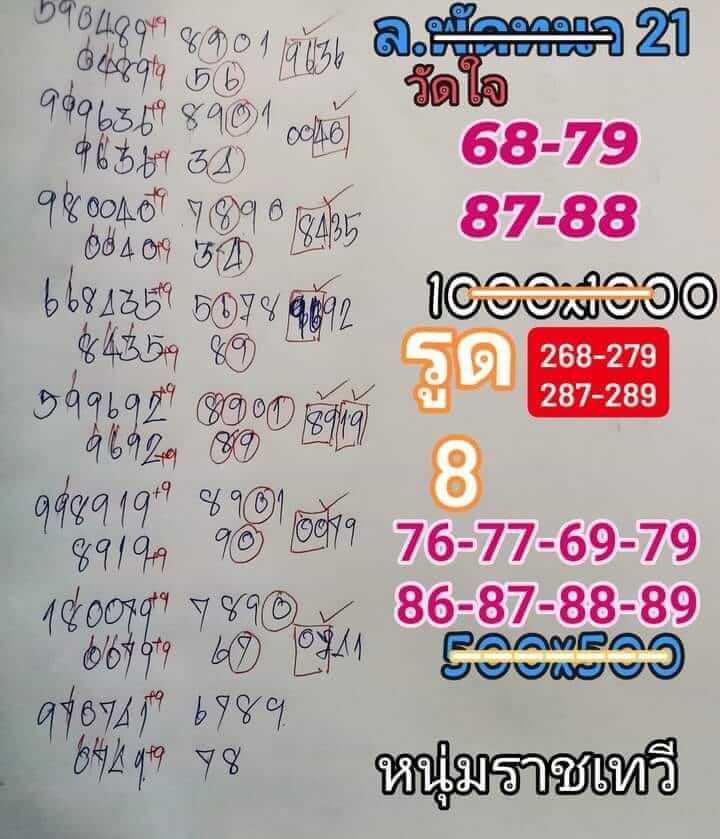 590489+9 8901 9636
0489+9 56
999636+9 8901 0040
9636+9 34
980040+9 7890 8435
0040+9 34
668435+9 5678 9692
8435+9 89
599692+9 8901 8919
9692+9 89
998919+9 8901 0079
8919+9 90
180079+9 7890 0741
0079+9 67
970741+9 6789
0741+9 78
ล.พัฒทนา 21
วัดใจ
68-79
87-88
1000x1000
รูด 268-279
287-289
8
76-77-69-79
86-87-88-89
500x500
หนุ่มราชเทวี